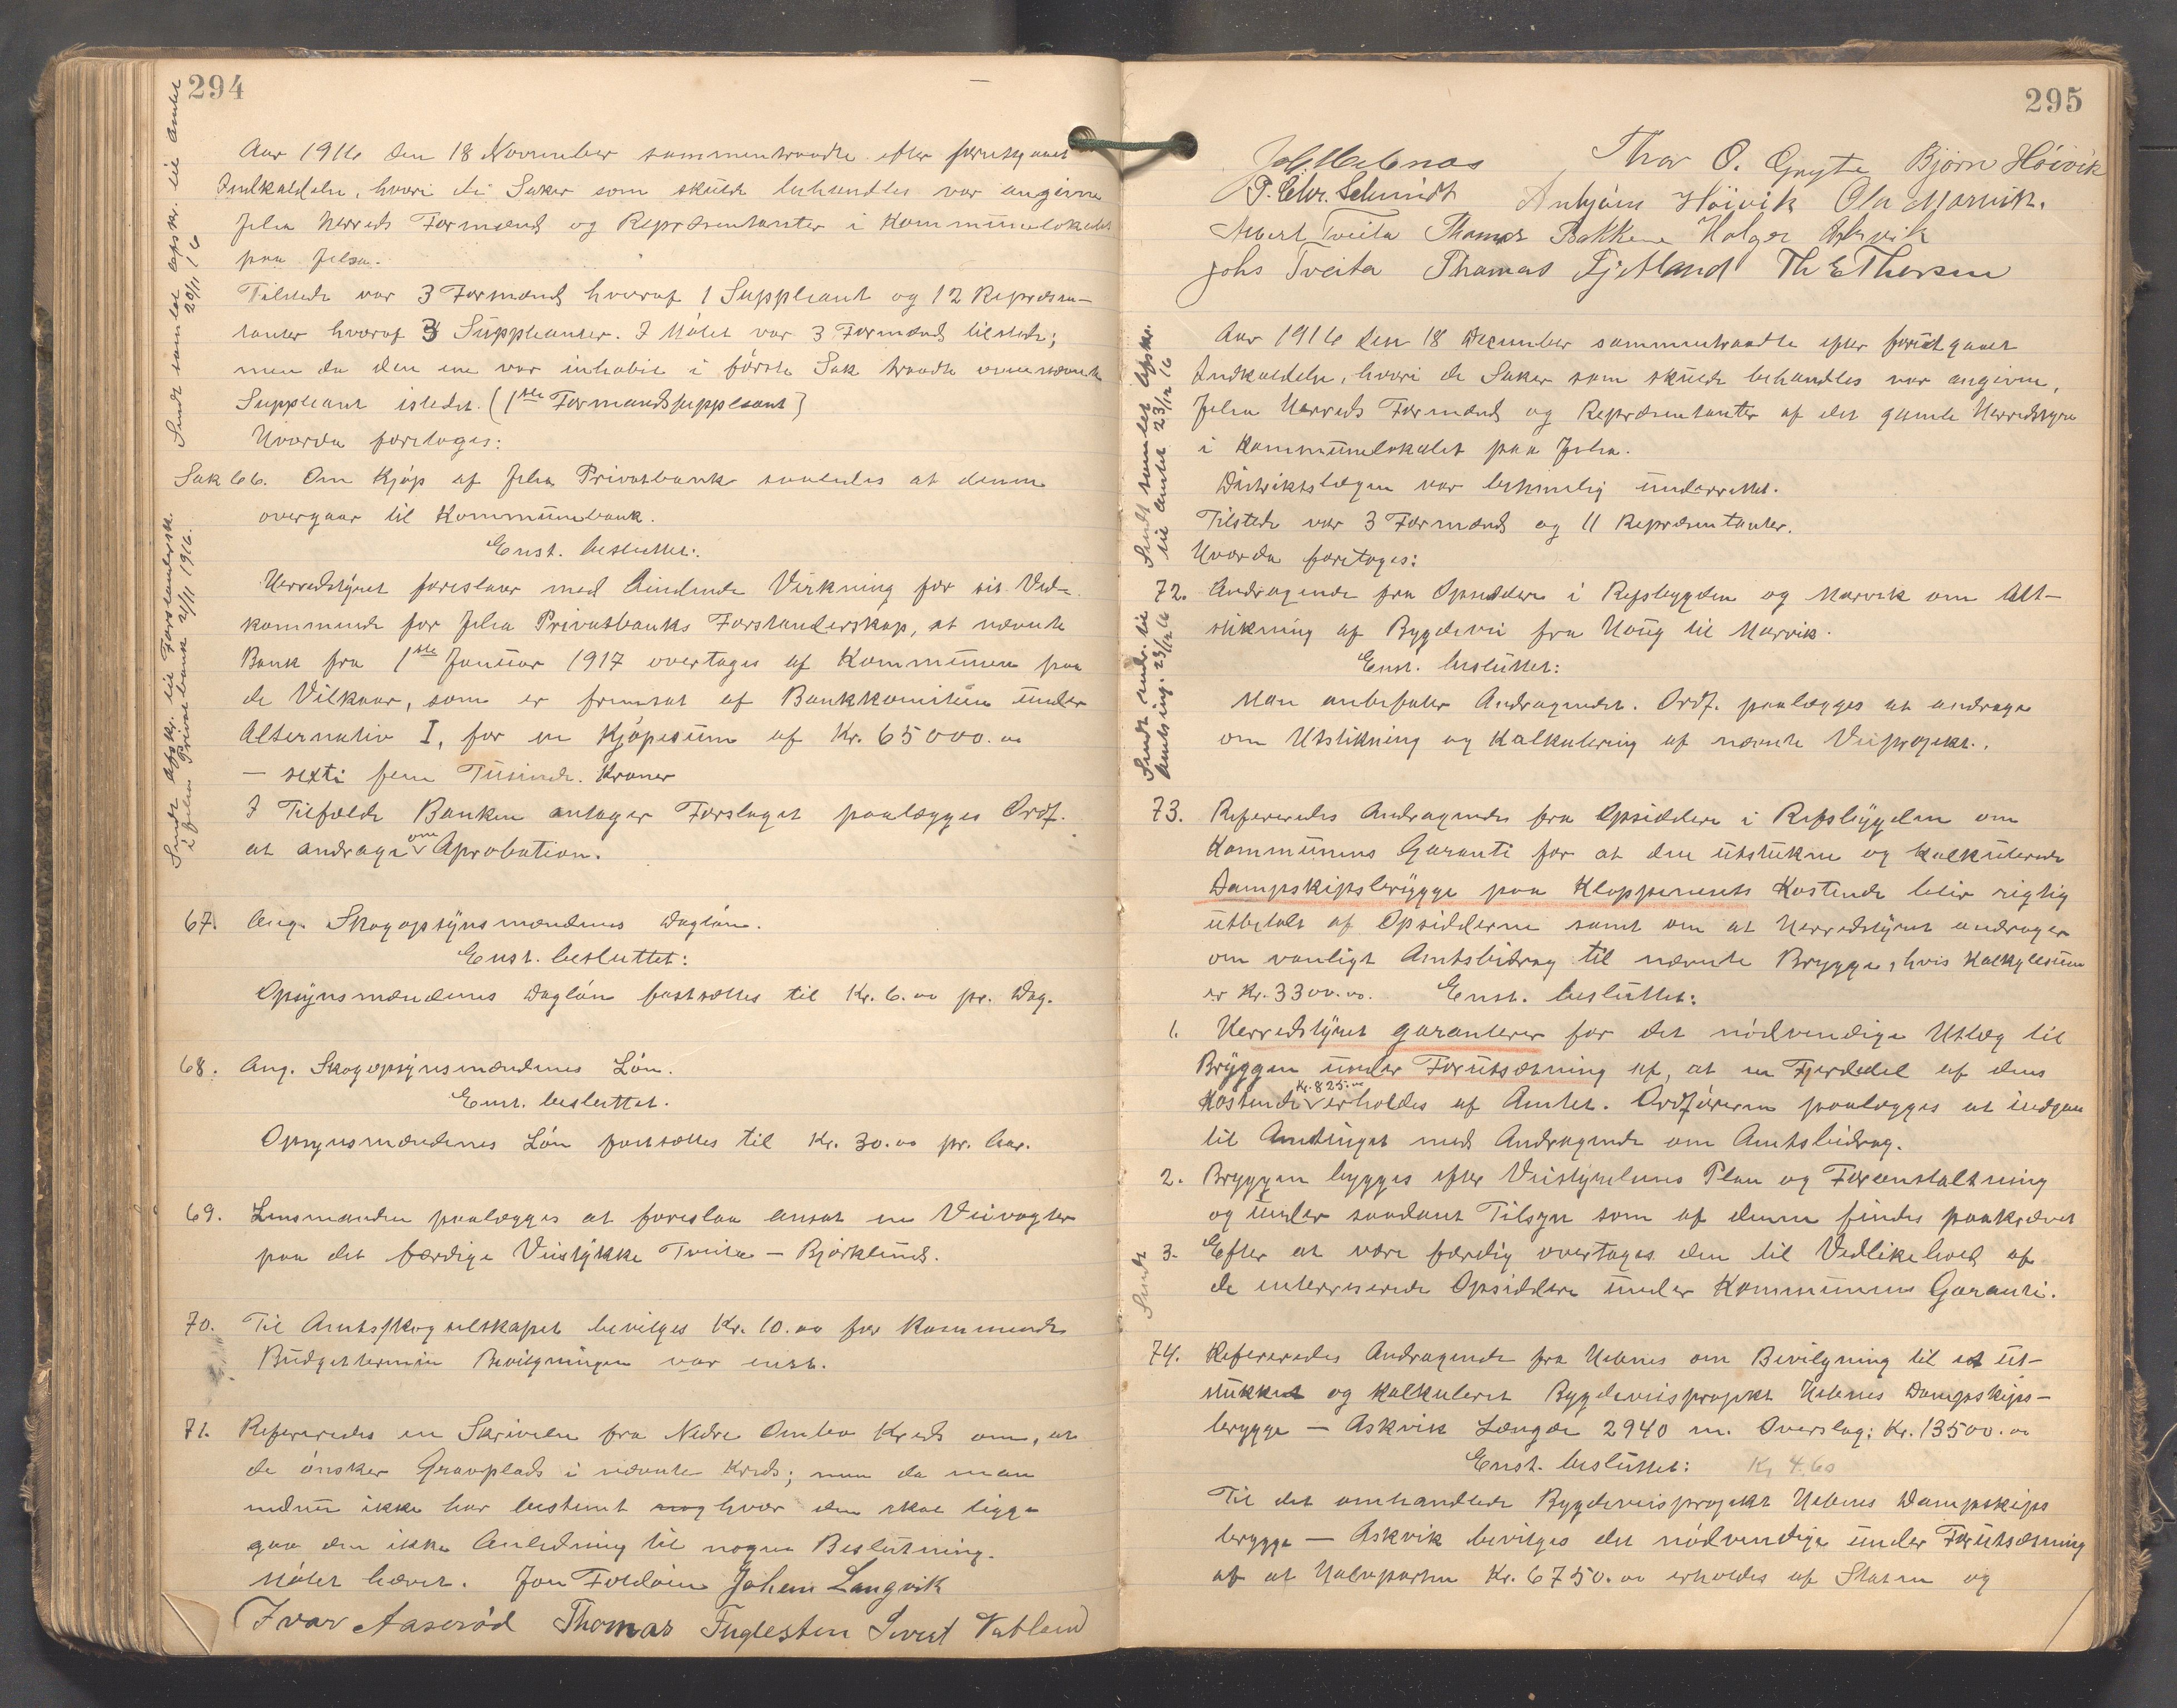 294
Aar 1916 den 18 November sammentraadte efter forutgaaet
Indkaldelse, hvori de Saker som skulde behandles var angivne
Jelsa Herreds Formænd og Repræsentanter i Kommunelokalet
paa Jelsa.
Tilstede var 3 Formænd hvoraf 1 Suppleant og 12 Repræsen-
tanter hvoraf 3 Suppleanter. I Møtet var 3 Formænd tilstede;
men da den ene var inhabil i første Sak traadte ovennævnte
Suppleant istedet. (1ste Formandssuppleant)
Hvorda foretoges:
Sak 66. Om Kjøp af Jelsa Privatbank saaledes at denne
overgaar til Kommunebank.
Enst. besluttet:
Herredstyret foreslaar med bindende Virkning for sit Ved-
kommende for Jelsa Privatbanks Forstanderskap, at nævnte
Bank fra 1ste Januar 1917 overtages af Kommunen paa
de Vilkaar, som er fremsat af Bankkomiteen under
Alternativ I, for en Kjøpesum af Kr. 65000.00
– sexti fem Tusinde Kroner
I Tilfælde Banken antager Forslaget paalægges Ordf.
at andrage om Aprobation.
67. Ang. Skogopsynsmændenes Dagløn.
Enst. besluttet:
Opsynsmændenes Dagløn fastsættes til Kr. 6.00 pr. Dag.
68. Ang. Skogopsynsmændenes Løn.
Enst. besluttet.
Opsynsmændenes Løn fastsættes til Kr. 30.00 pr. Aar.
69. Lensmanden paalægges at foreslaa ansat en Veivogter
paa det færdige Veistykke Tveita – Bjørklund.
70. Til Amtsskogselskapet bevilges Kr. 10.00 for kommende
Budgettermin Bevilgningen var enst.
71. Refereredes en Skrivelse fra Nedre Ombo Kreds om, at
de ønsker Gravplads i nævnte Kreds; men da man
endnu ikke har bestemt hvor den skal ligge
gav den ikke Anledning til nogen Beslutning.
Møtet hævet. Jon Foldøen Johan Langvik
Ivar Aaserød Thomas Fuglesten Sivert Vatland
Sendt samlet afskr. til Amtet
20/11 16
Sendt afskr. til Forstandersk.
i Jelsa Privatbank 21/11 1916.
295
Thor O. Gryte Bjørn Høivik
P. Chr. Schmidt Anbjørn Høivik Ola Marvik.
Albert Tveita Thomas Bakken Holger
Johs Tveita Thomas Fjetland Th E Thorsen
Aar 1916 den 18 December sammentraadte efter forutgaaet
Indkaldelse, hvori de Saker som skulde behandles var angivne,
Jelsa Herreds Formænd og Repræsentanter af det gamle Herredstyre
i Kommunelokalet paa Jelsa.
Distriktslægen var betimelig underrettet.
Tilstede var 3 Formænd og 11 Repræsentanter.
Hvorda foretoges:
72. Andragende fra Opsiddere i Refsbygden og Marvik om Ut-
stikning af Bygdevei fra Haug til Marvik.
Enst. besluttet:
Man anbefaler Andragendet. Ordf. paalægges at andrage
om Utstikning og Kalkulering af nævnte Veiprojekt.
73. Refereredes Andragende fra Opsiddere i Refsbygden om
Kommunens Garanti for at den utstukne og kalkulerede
Dampskipsbrygge paa Kloppenests Kostende blir rigtig
utbetalt af Opsidderne samt om at Herredstyret andrager
om vanligt Amtsbidrag til nævnte Brygge, hvis Kalkylesum
er Kr. 3300.00. Enst. besluttet:
1. Herredstyret garanterer for det nødvendige Utlæg til
Bryggen under Forutsætning af, at en Fjerdedel af dens
Kostende Kr. 825.00 erholdes af Amtet. Ordføreren paalægges at indgaa
til Amtinget med Andragende om Amtsbidrag.
2. Bryggen bygges efter Veistyrelsens Plan og Foranstaltning
og under saadant Tilsyn som af denne findes paakrævet
3. Efter at være færdig overtages den til Vedlikehold af
de interesserede Opsiddere under Kommunens Garanti.
74. Refereredes Andragende fra Hebnes om Bevilgning til et ut-
stukket og kalkuleret Bygdeveisprojekt Hebnes Dampskips-
brygge – Askvik Længde 2940 m. Overslag: Kr. 13500.00
Enst. besluttet: Kr 4.60
Til det omhandlede Bygdeveisprojekt Hebnes Dampskips
brygge – Askvik bevilges det nødvendige under Forutsætning
af at Halvparten Kr. 6750.00 erholdes af Staten og
Sendt samlet afskr.
til Amtet 23/12 16
Sendt andr. til
Amtsing. 23/12 16
Sendt